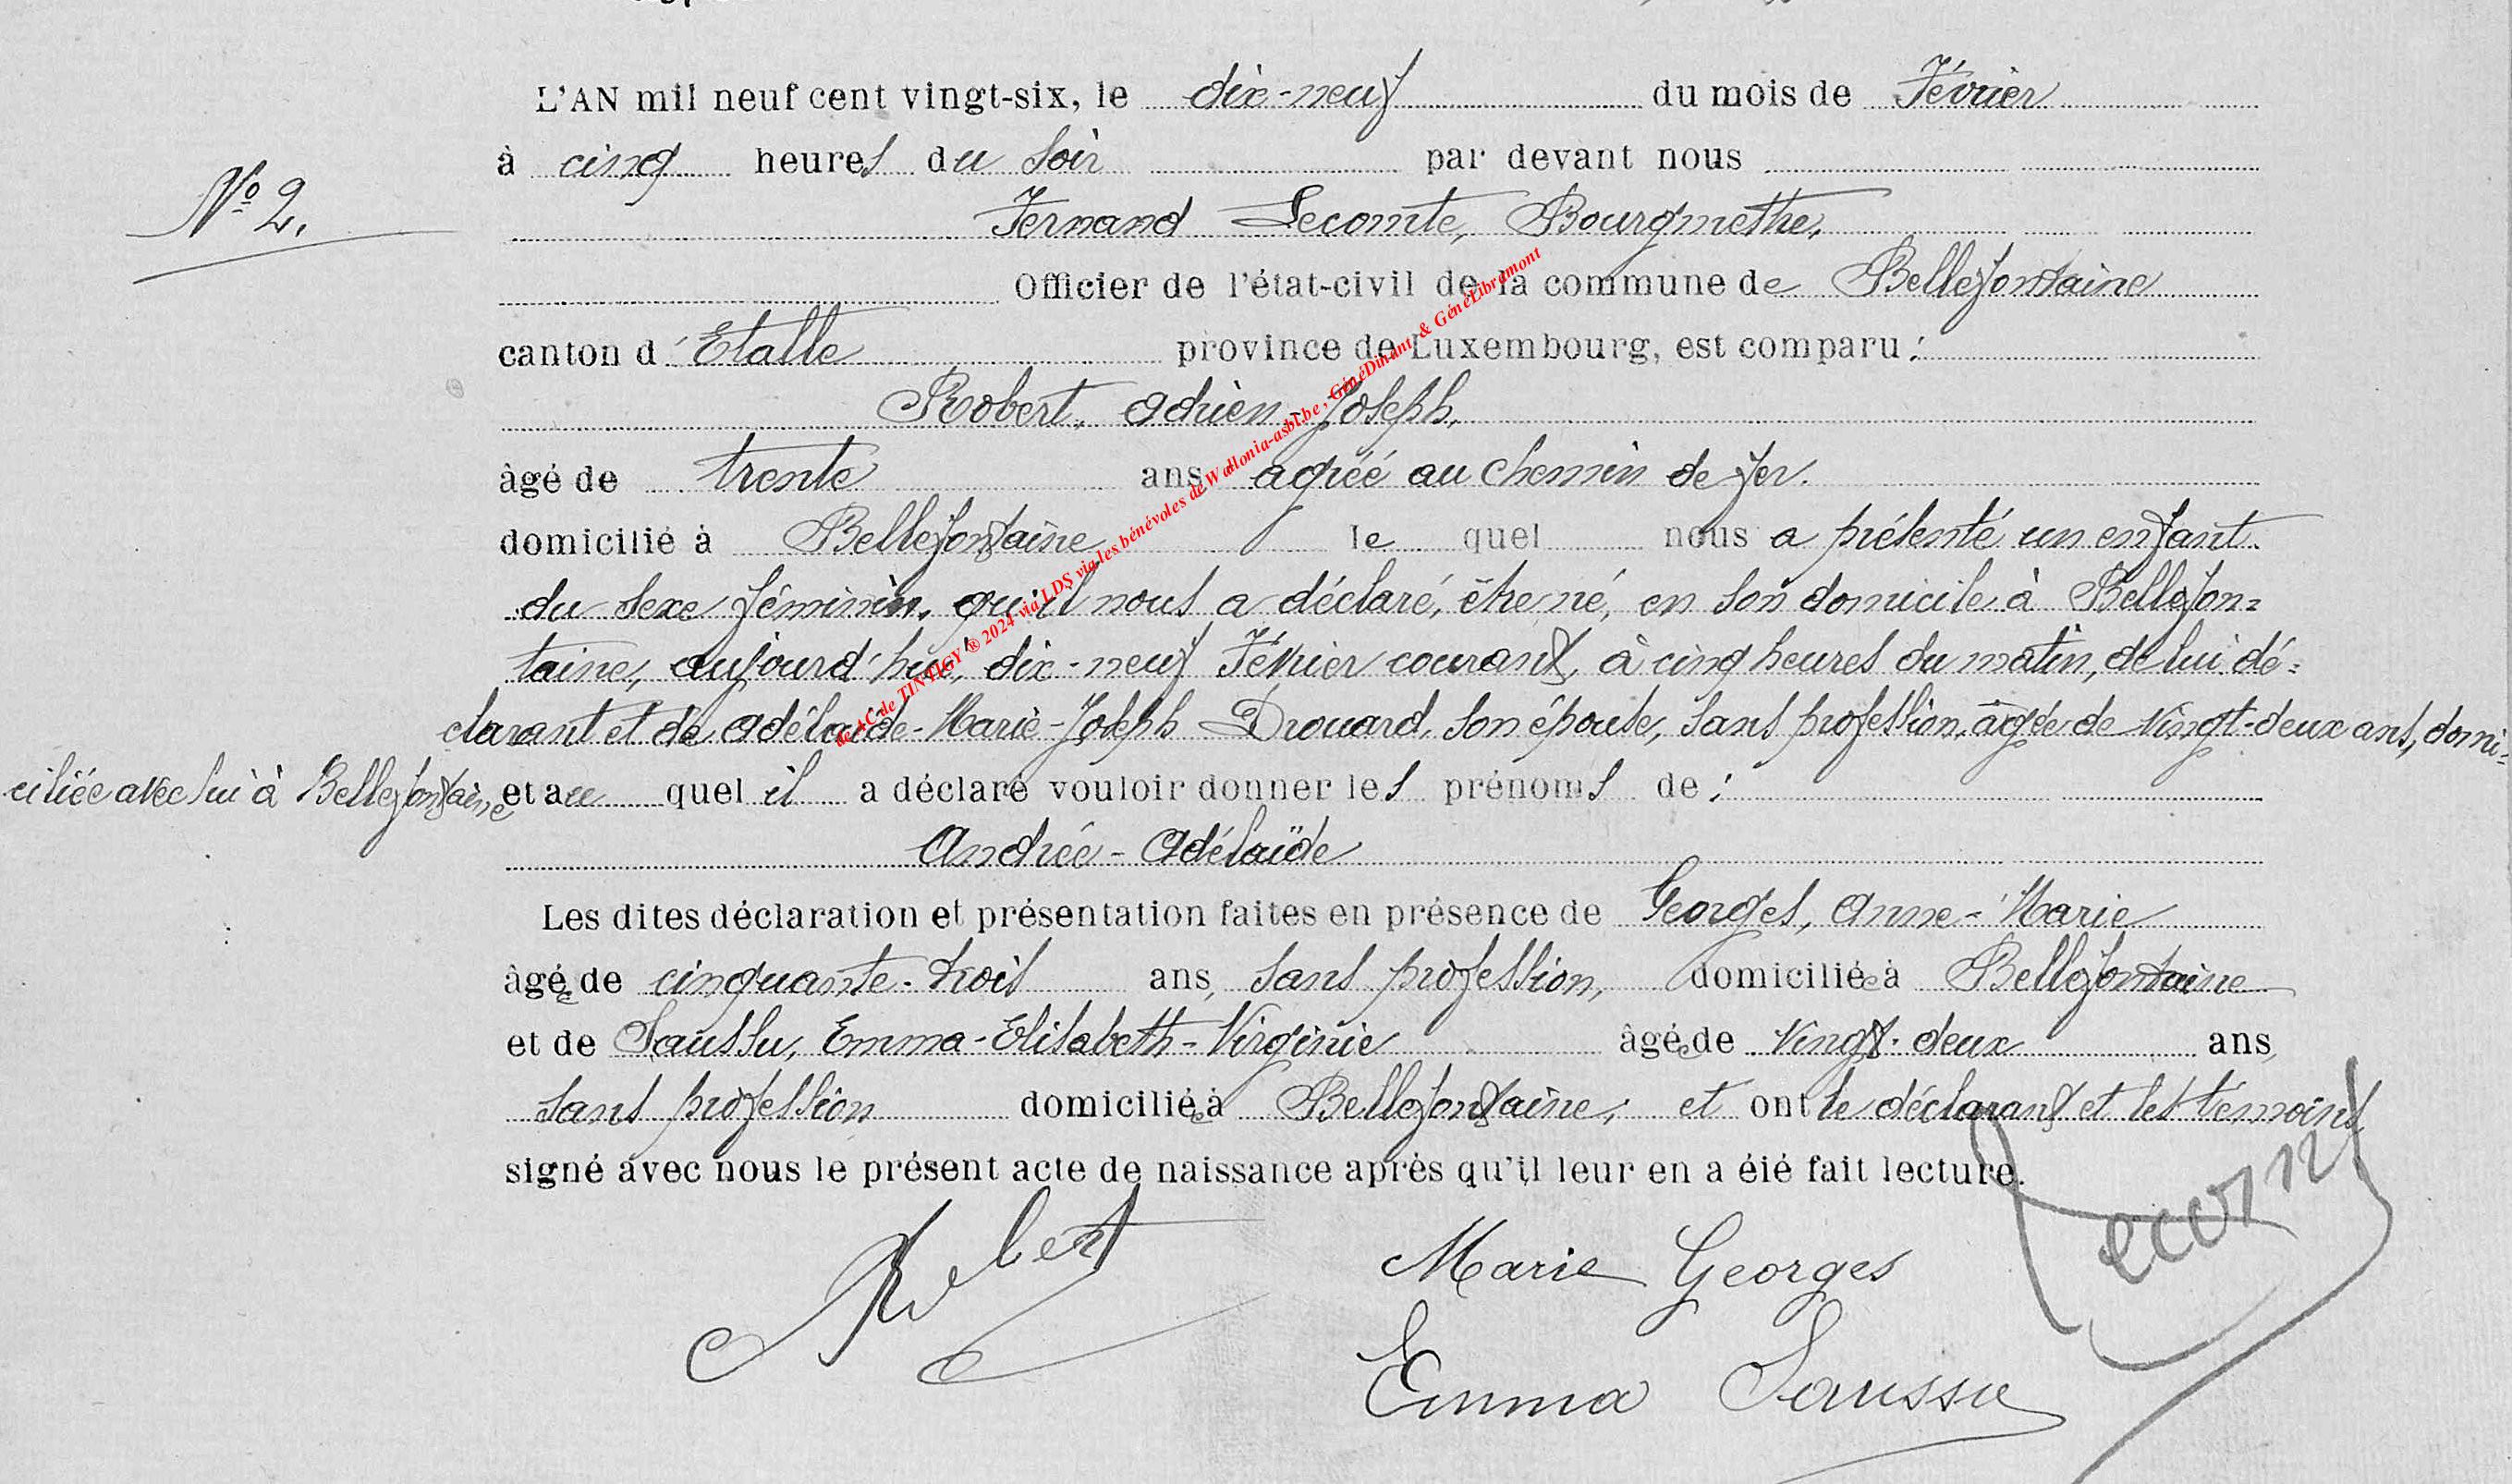 L'AN mil neuf cent vingt-six, le dix-neuf du mois de Février
à cinq heures du soir par devant nous
N° 2.
Fernand Lecomte, Bourgmestre,
Officier de l'état-civil de la commune de Bellefontaine
canton d'Etalle province de Luxembourg, est comparu :
Robert, Adrien-Joseph,
âgé de trente ans agréé au chemin de fer.
domicilié à Bellefontaine le quel nous a présenté un enfant
du sexe féminin, qu'il nous a déclaré, être né, en son domicile à Bellefon=
taine, aujourd'hui, dix-neuf Février courant, à cinq heures du matin, de lui dé=
clarant et de Adélaïde-Marie-Joseph Drouard, son épouse, sans profession, âgée de vingt-deux ans, domi=
ciliée avec lui à Bellefontaine et au quel il a déclaré vouloir donner les prénoms de :
Andrée-Adélaïde
Les dites déclaration et présentation faites en présence de Georges, Anne-Marie
âgée de cinquante-trois ans, sans profession, domiciliée à Bellefontaine
et de Saussu, Emma-Elisabeth-Virginie âgée de vingt-deux ans,
sans profession domiciliée à Bellefontaine, et ont le déclarant et les témoins
signé avec nous le présent acte de naissance après qu'il leur en a été fait lecture.
Robert
Marie Georges
Lecomt
Emma Saussu
de AC de TINTIGY ® 2024 via LDS via les bénévoles de Wallonia-asbl.be , GénéDinant & GénéLibramont